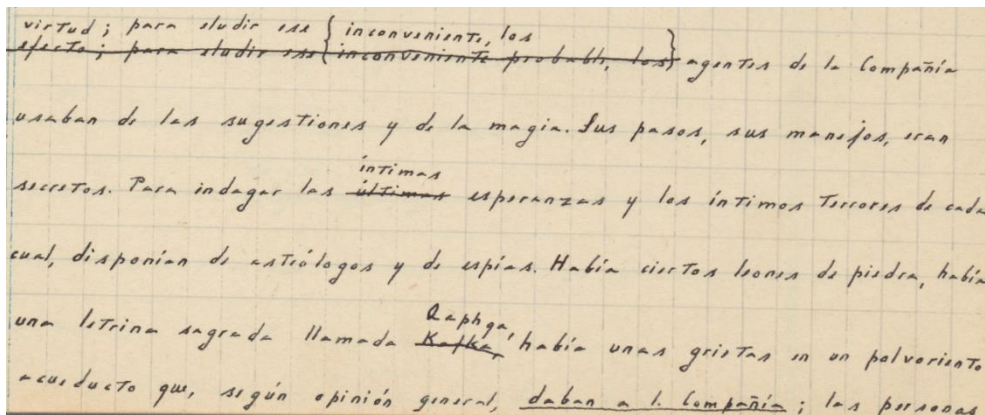 virtud; para eludir ese { inconveniente, los }
efecto; para eludir ese { inconveniente probable, los } agentes de la Compañía
usaban de las sugestiones y de la magia. Sus pasos, sus manejos, eran
íntimas
secretos. Para indagar las últimas esperanzas y los íntimos terrores de cada
cual, disponían de astrólogos y de espías. Había ciertos leones de piedra, había
Qaphqa,
una letrina sagrada llamada Kafka, había unas grietas en un polvoriento
acueducto que, según opinión general, daban a l. Compañía; las personas